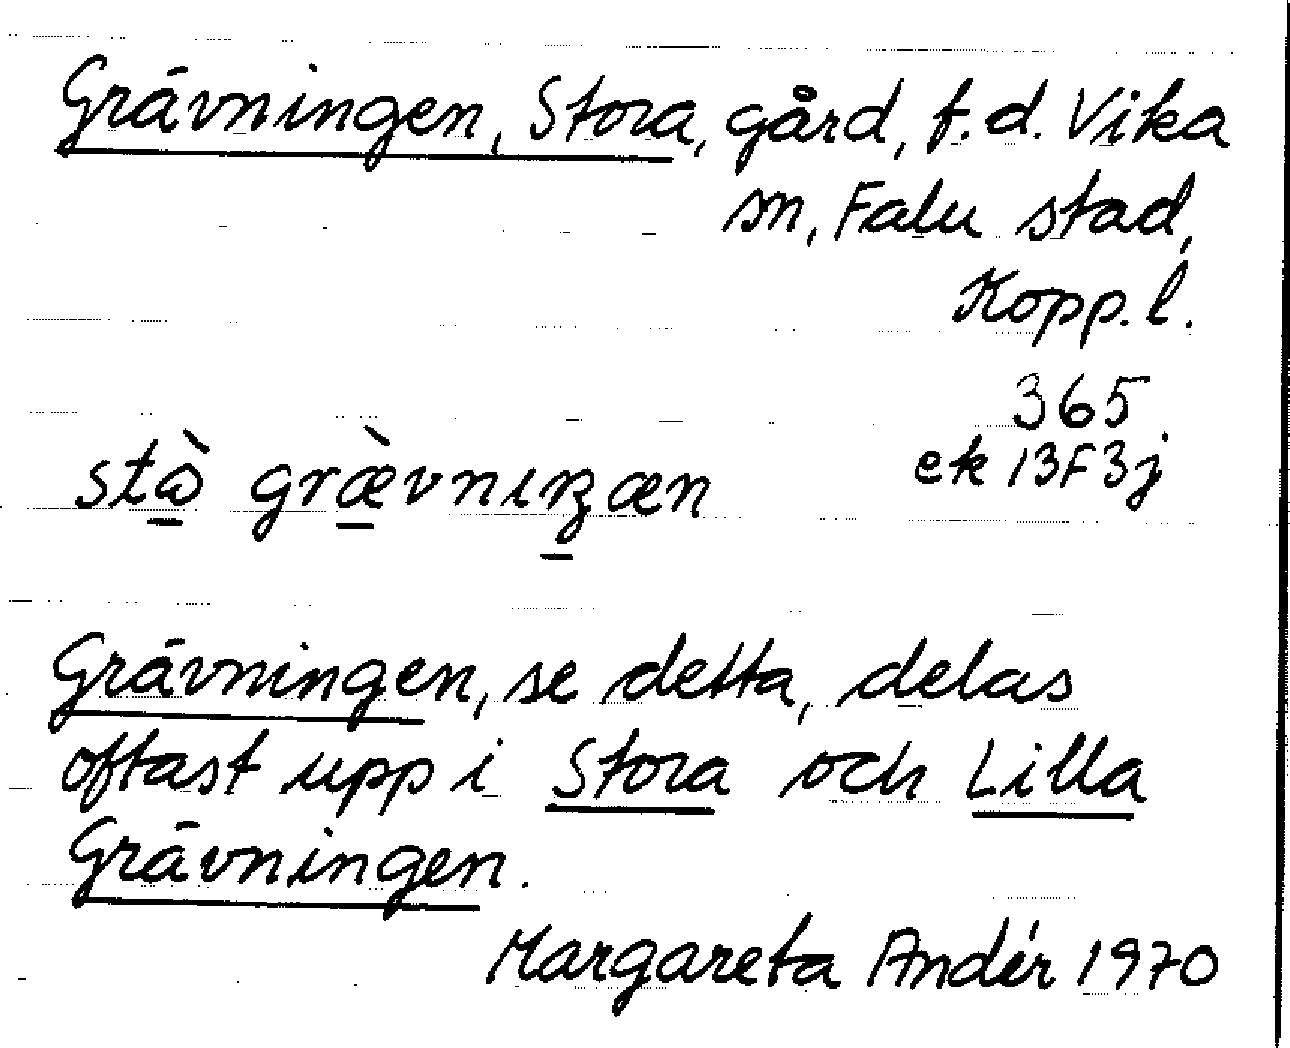 Grävningen, Stora, gård, f.d. Vika
sn, Falu stad,
Kopp. l.
365
ek 13F3j
Grävningen, se detta, delas
oftast upp i Stora och Lilla
Grävningen.
Margareta Andér 1970